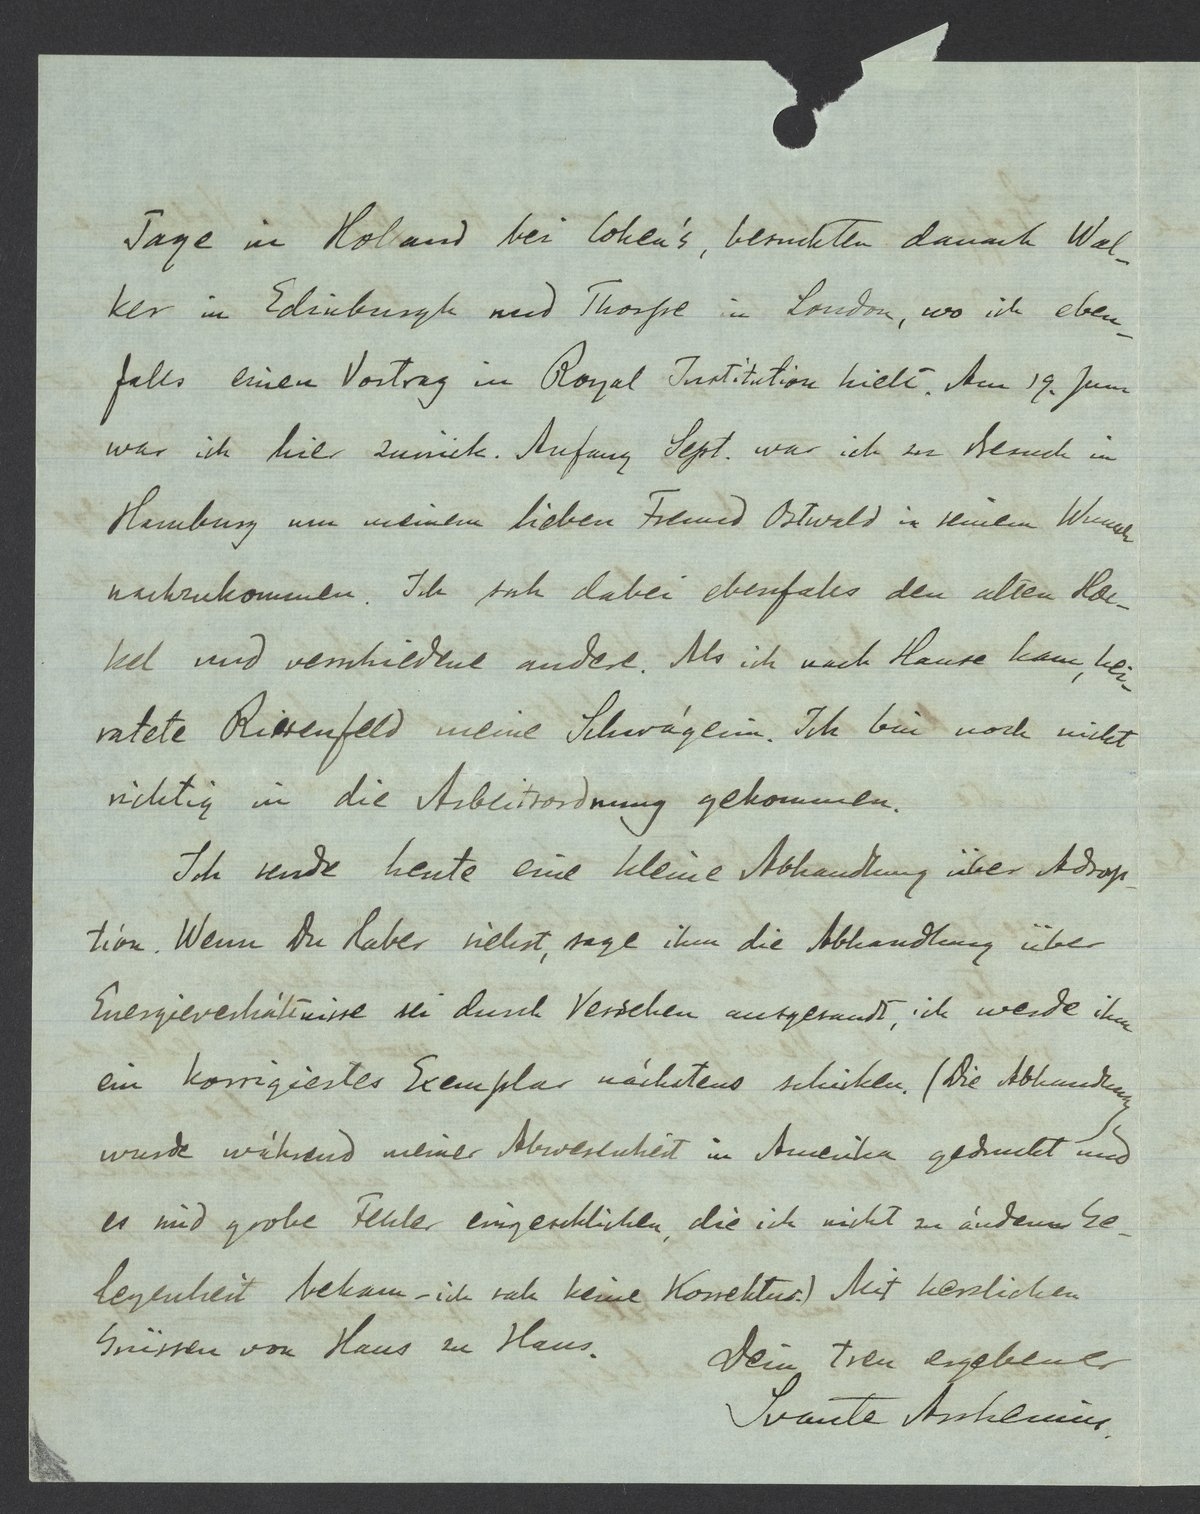 Tage in Holand bei Cohen's, besuchten danach Wal-
ker in Edinburgh und Thorpe in London, wo ich eben-
falls einen Vortrag in Royal Institution hielt. Am 19. Juni
war ich hier zurück. Anfang Sept. war ich zu Besuch in
Hamburg um meinem lieben Freund Ostwald in seinem Wunsch
nachzukommen. Ich sah dabei ebenfalls den alten Hae-
kel und verschiedene andere. Als ich nach Hause kam, hei-
ratete Riesenfeld meine Schwägerin. Ich bin noch nicht
richtig in die Arbeitsordnung gekommen.
Ich sende heute eine kleine Abhandlung über Adsorp-
tion. Wenn Du Haber siehst, sage ihm die Abhandlung über
Energieverhältnisse sei durch Versehen ausgesandt, ich werde ihm
ein korrigiertes Exemplar nächstens schicken. (Die Abhandlung
wurde während meiner Abwesenheit in Amerika gedruckt und
es sind grobe Fehler eingeschlichen, die ich nicht zu ändern Ge-
legenheit bekam - ich sah keine Korrektur.) Mit herzlichen
Grüssen von Haus zu Haus.
Dein treu ergebener
Svante Arrhenius.